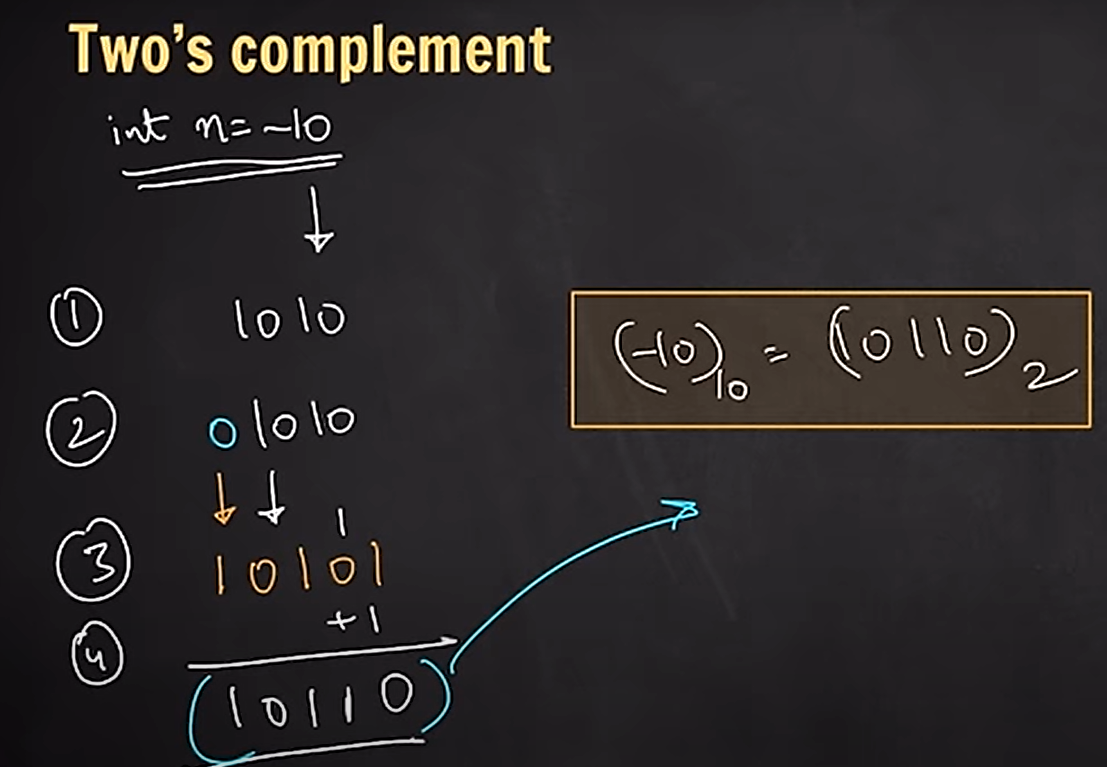 Two's complement
int n=-10
① 1010
② 01010
1
③ 10101
+1
④
(10110)
(-10)10 = (10110)2